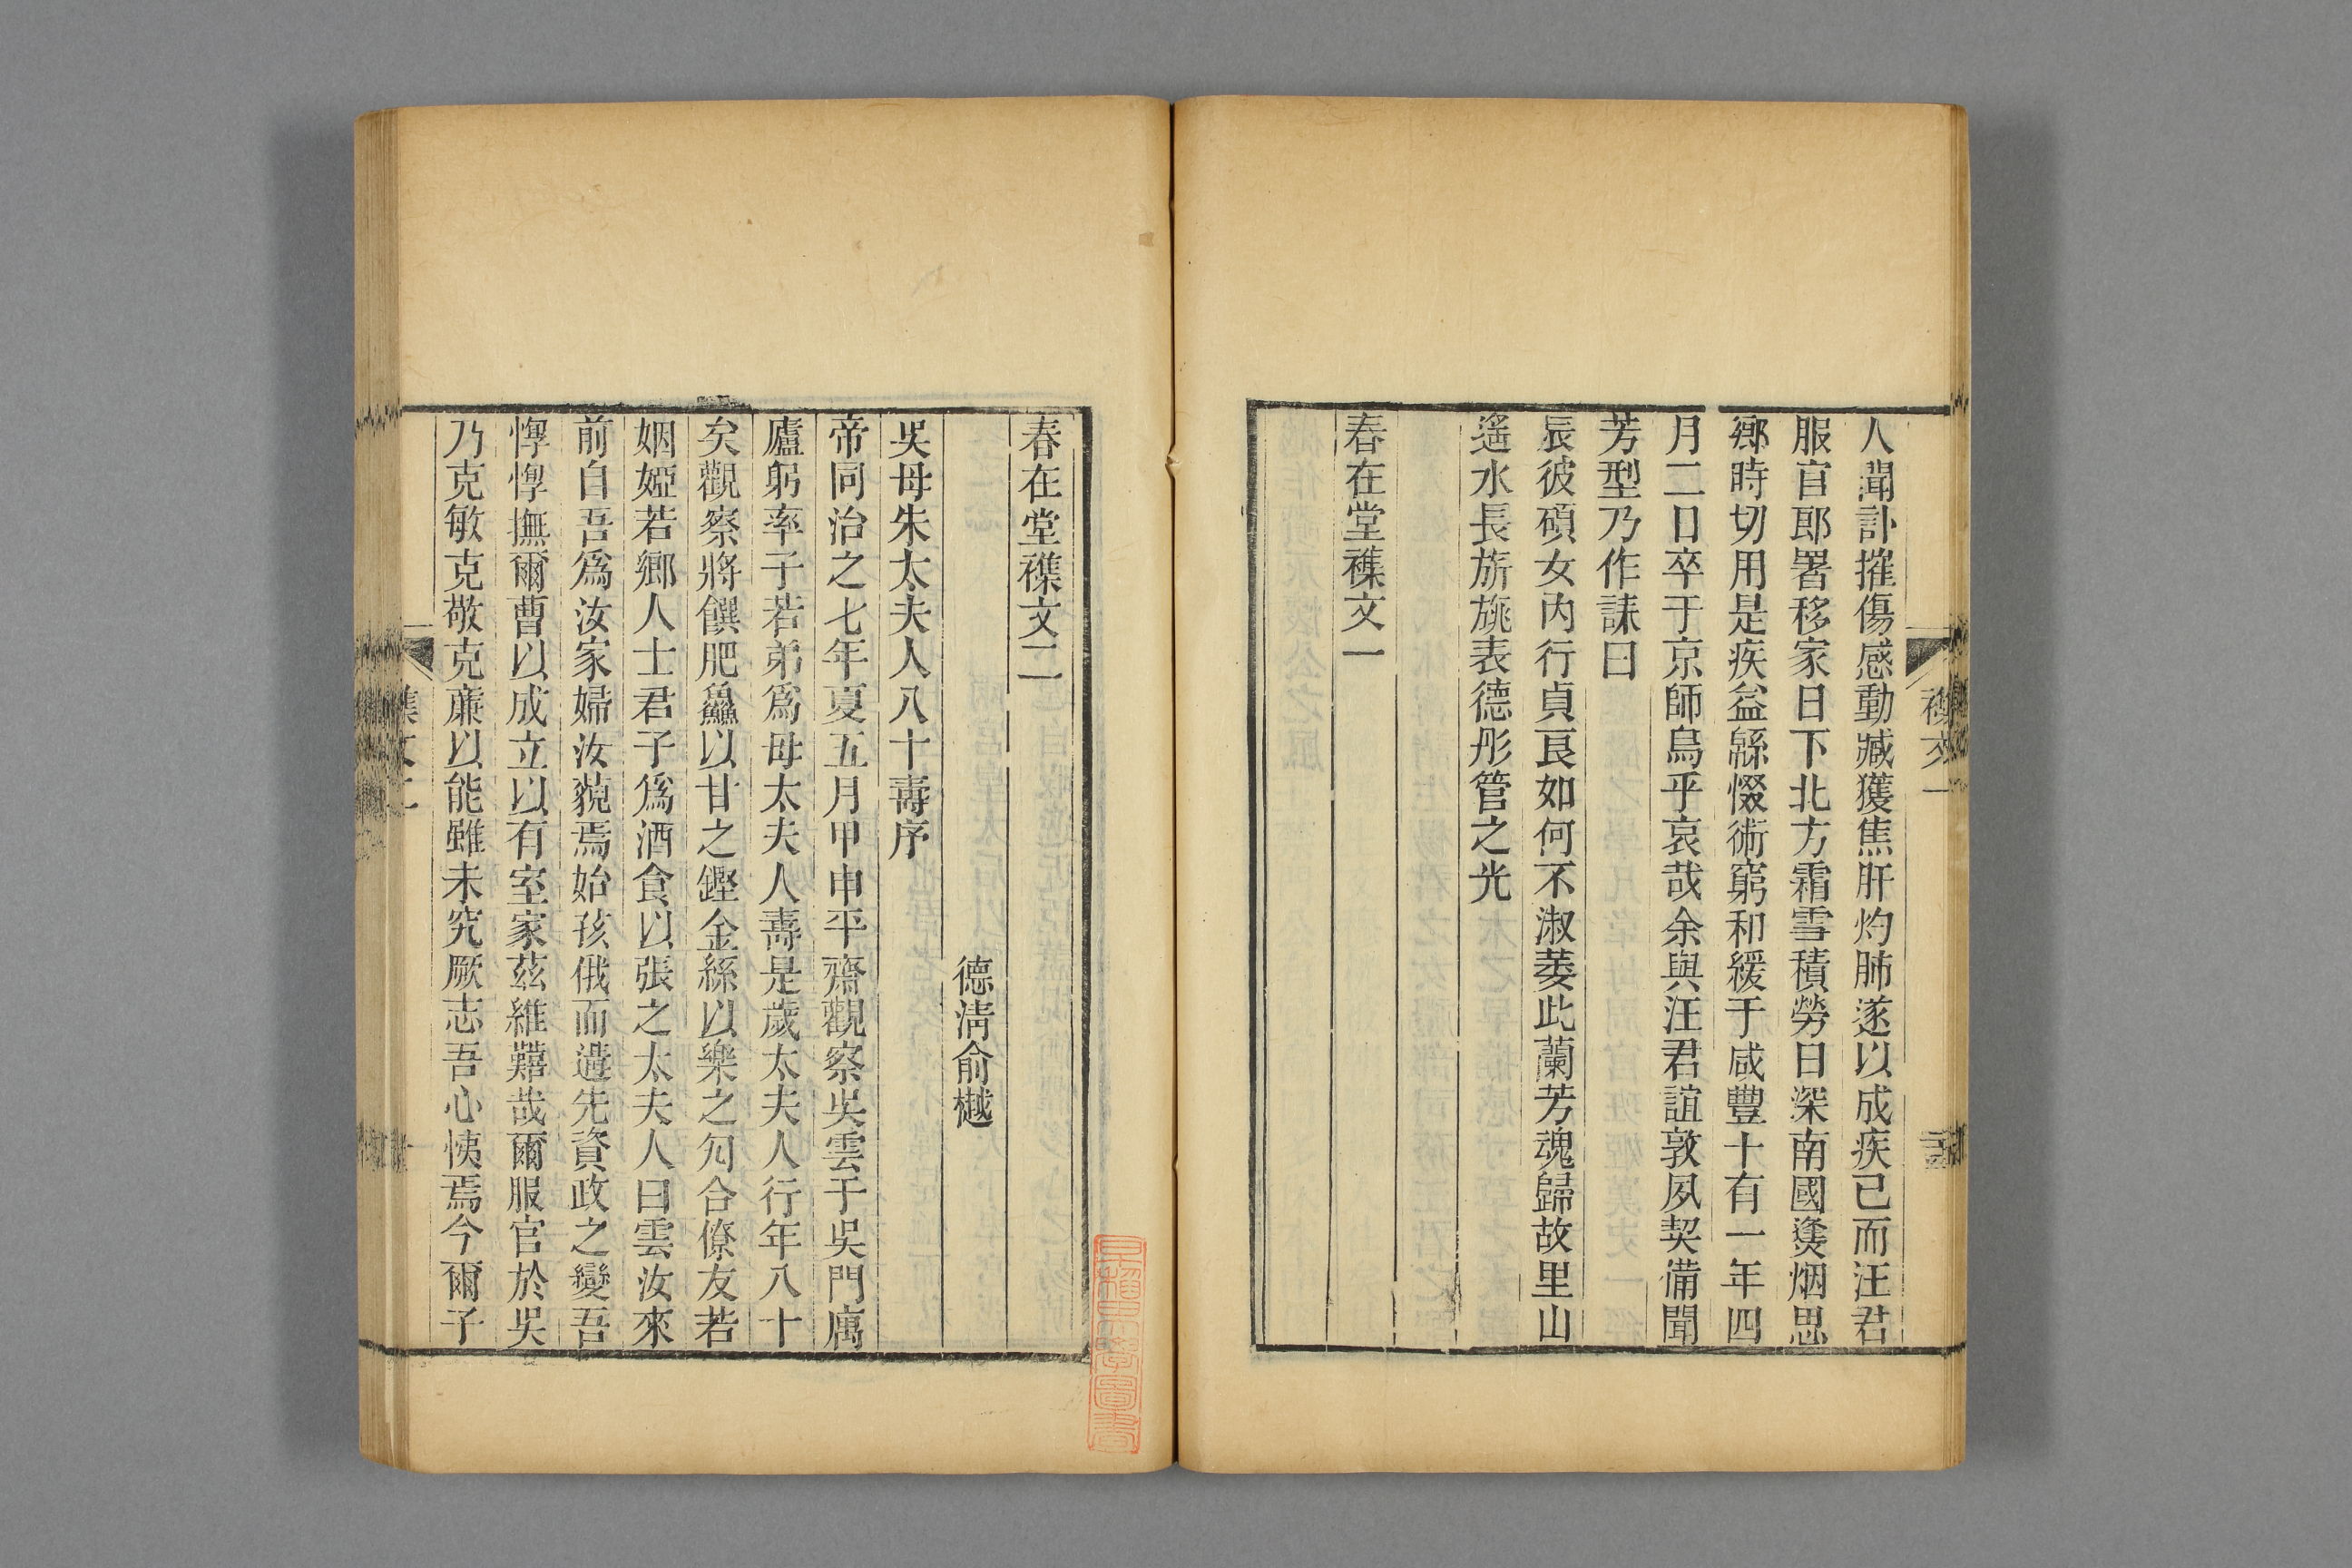 人聞訃摧傷感動臧獲焦肝灼肺遂以成疾已而汪君
服官郎署移家日下北方霜雪積勞日深南國燹烟思
鄉時切用是疾益緜惙術窮和緩于咸豐十有一年四
月二日卒于京師烏乎哀哉余與汪君誼敦夙契備聞
芳型乃作誄曰
展彼碩女內行貞良如何不淑萎此蘭芳魂歸故里山
遙水長旂旐表德彤管之光
春在堂襍文一
春在堂襍文二
德淸俞樾
吳母朱太夫人八十壽序
帝同治之七年夏五月甲申平齋觀察吳雲于吳門寓
廬躬率子若弟爲母太夫人壽是歲太夫人行年八十
矣觀察將饌肥鱻以甘之鏗金絲以樂之勼合僚友若
姻婭若鄉人士君子爲酒食以張之太夫人曰雲汝來
前自吾爲汝家婦汝藐焉始孩俄而遘先資政之變吾
惸惸撫爾曹以成立以有室家茲維囏哉爾服官於吳
乃克敏克敬克廉以能雖未究厥志吾心怏焉今爾子